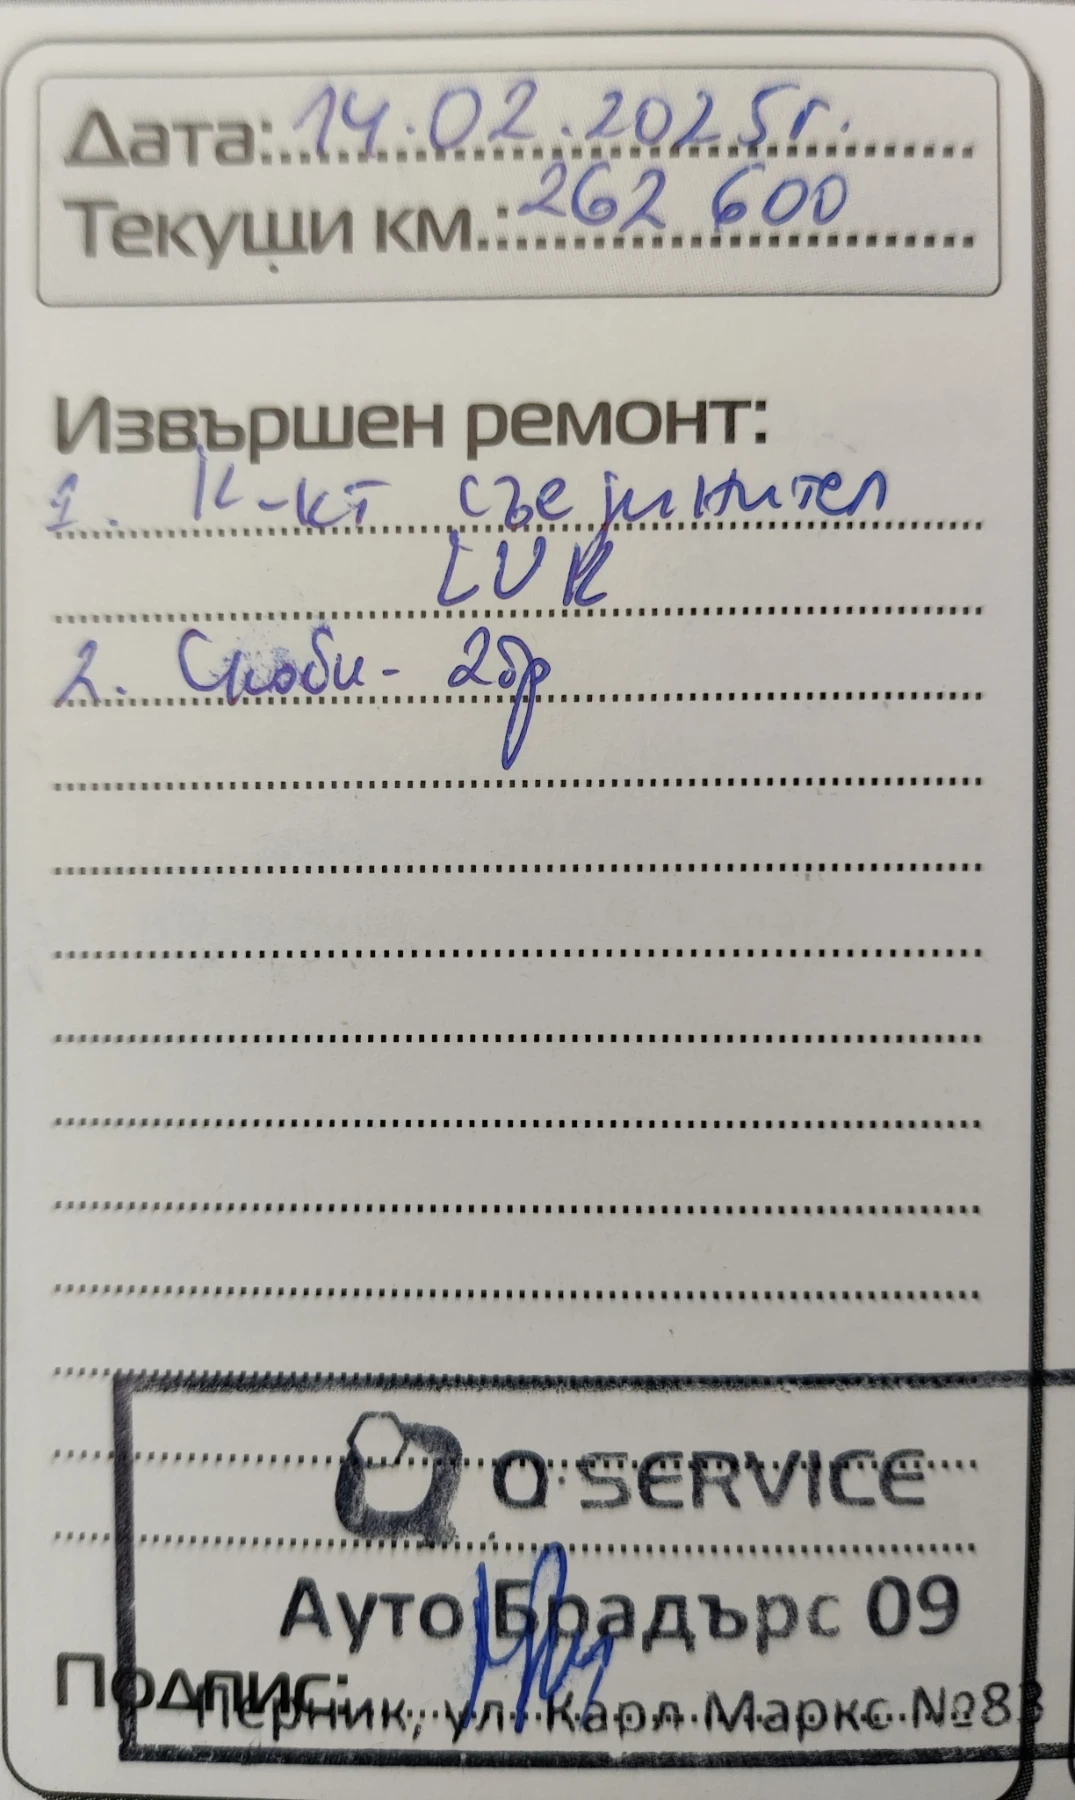 Дата: 14.02.2025г.
Текущи км.: 262 600
Извършен ремонт:
1. К-кт съединител
LUK
2. Скоби - 2бр
Q·SERVICE
Ауто Брадърс 09
Подпис:
Перник, ул. Карл Маркс №83